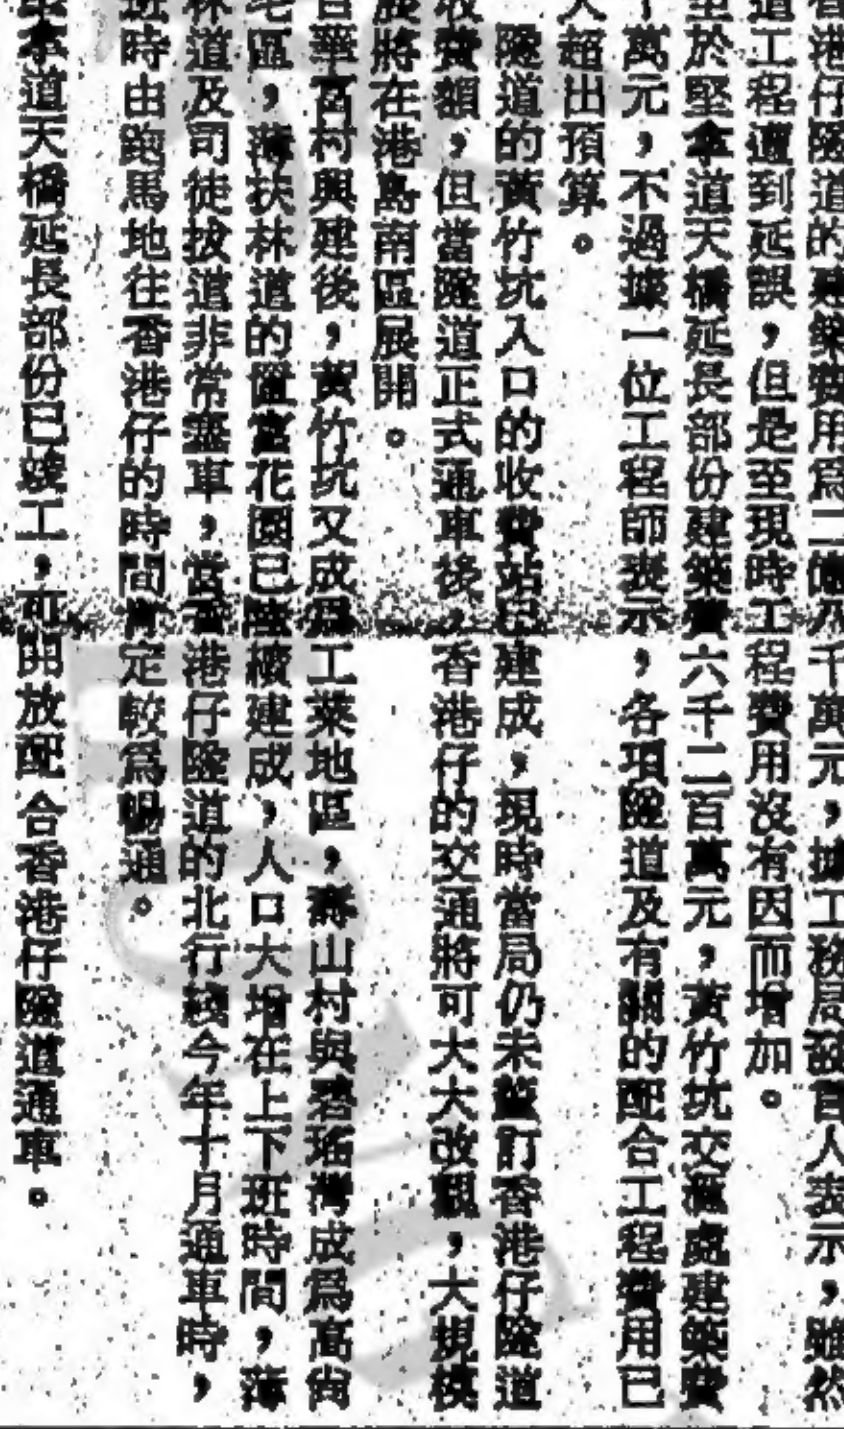 香港仔隧道的建築費用爲二億八千萬元，據工務局發言人表示，雖然
道工程遭到延誤，但是至現時工程費用沒有因而增加。
至於堅拿道天橋延長部份建築費六千二百萬元，黃竹坑交滙處建築費
萬元，不過據一位工程師表示，各項隧道及有關的配合工程費用已
大超出預算。
隧道的黃竹坑入口的收費站已建成，現時當局仍未釐訂香港仔隧道
收費額，但當隧道正式通車後，香港仔的交通將可大大改觀，大規模
展將在港島南區展開。
自華富村興建後，黃竹坑又成爲工業地區，壽山村與碧瑤灣成爲高尙
宅區，薄扶林道的置富花園已陸續建成，人口大增在上下班時間，薄
林道及司徒拔道非常塞車，當香港仔隧道的北行綫今年十月通車時，
班時由跑馬地往香港仔的時間肯定較爲暢通。
堅拿道天橋延長部份已竣工，可開放配合香港仔隧道通車。